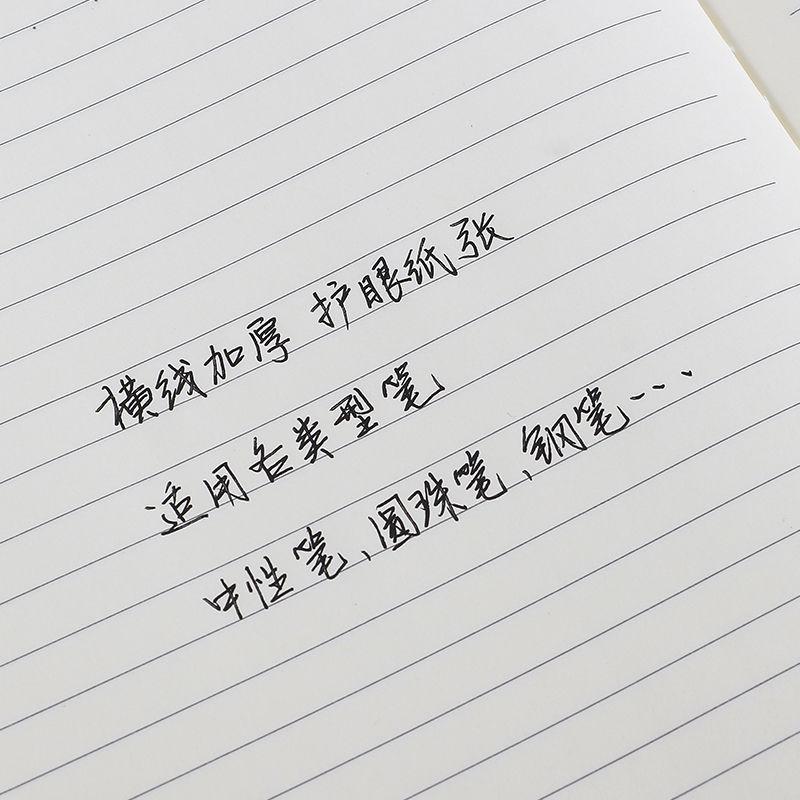 横线加厚 护眼纸张
适用各类型笔
中性笔、圆珠笔、钢笔…